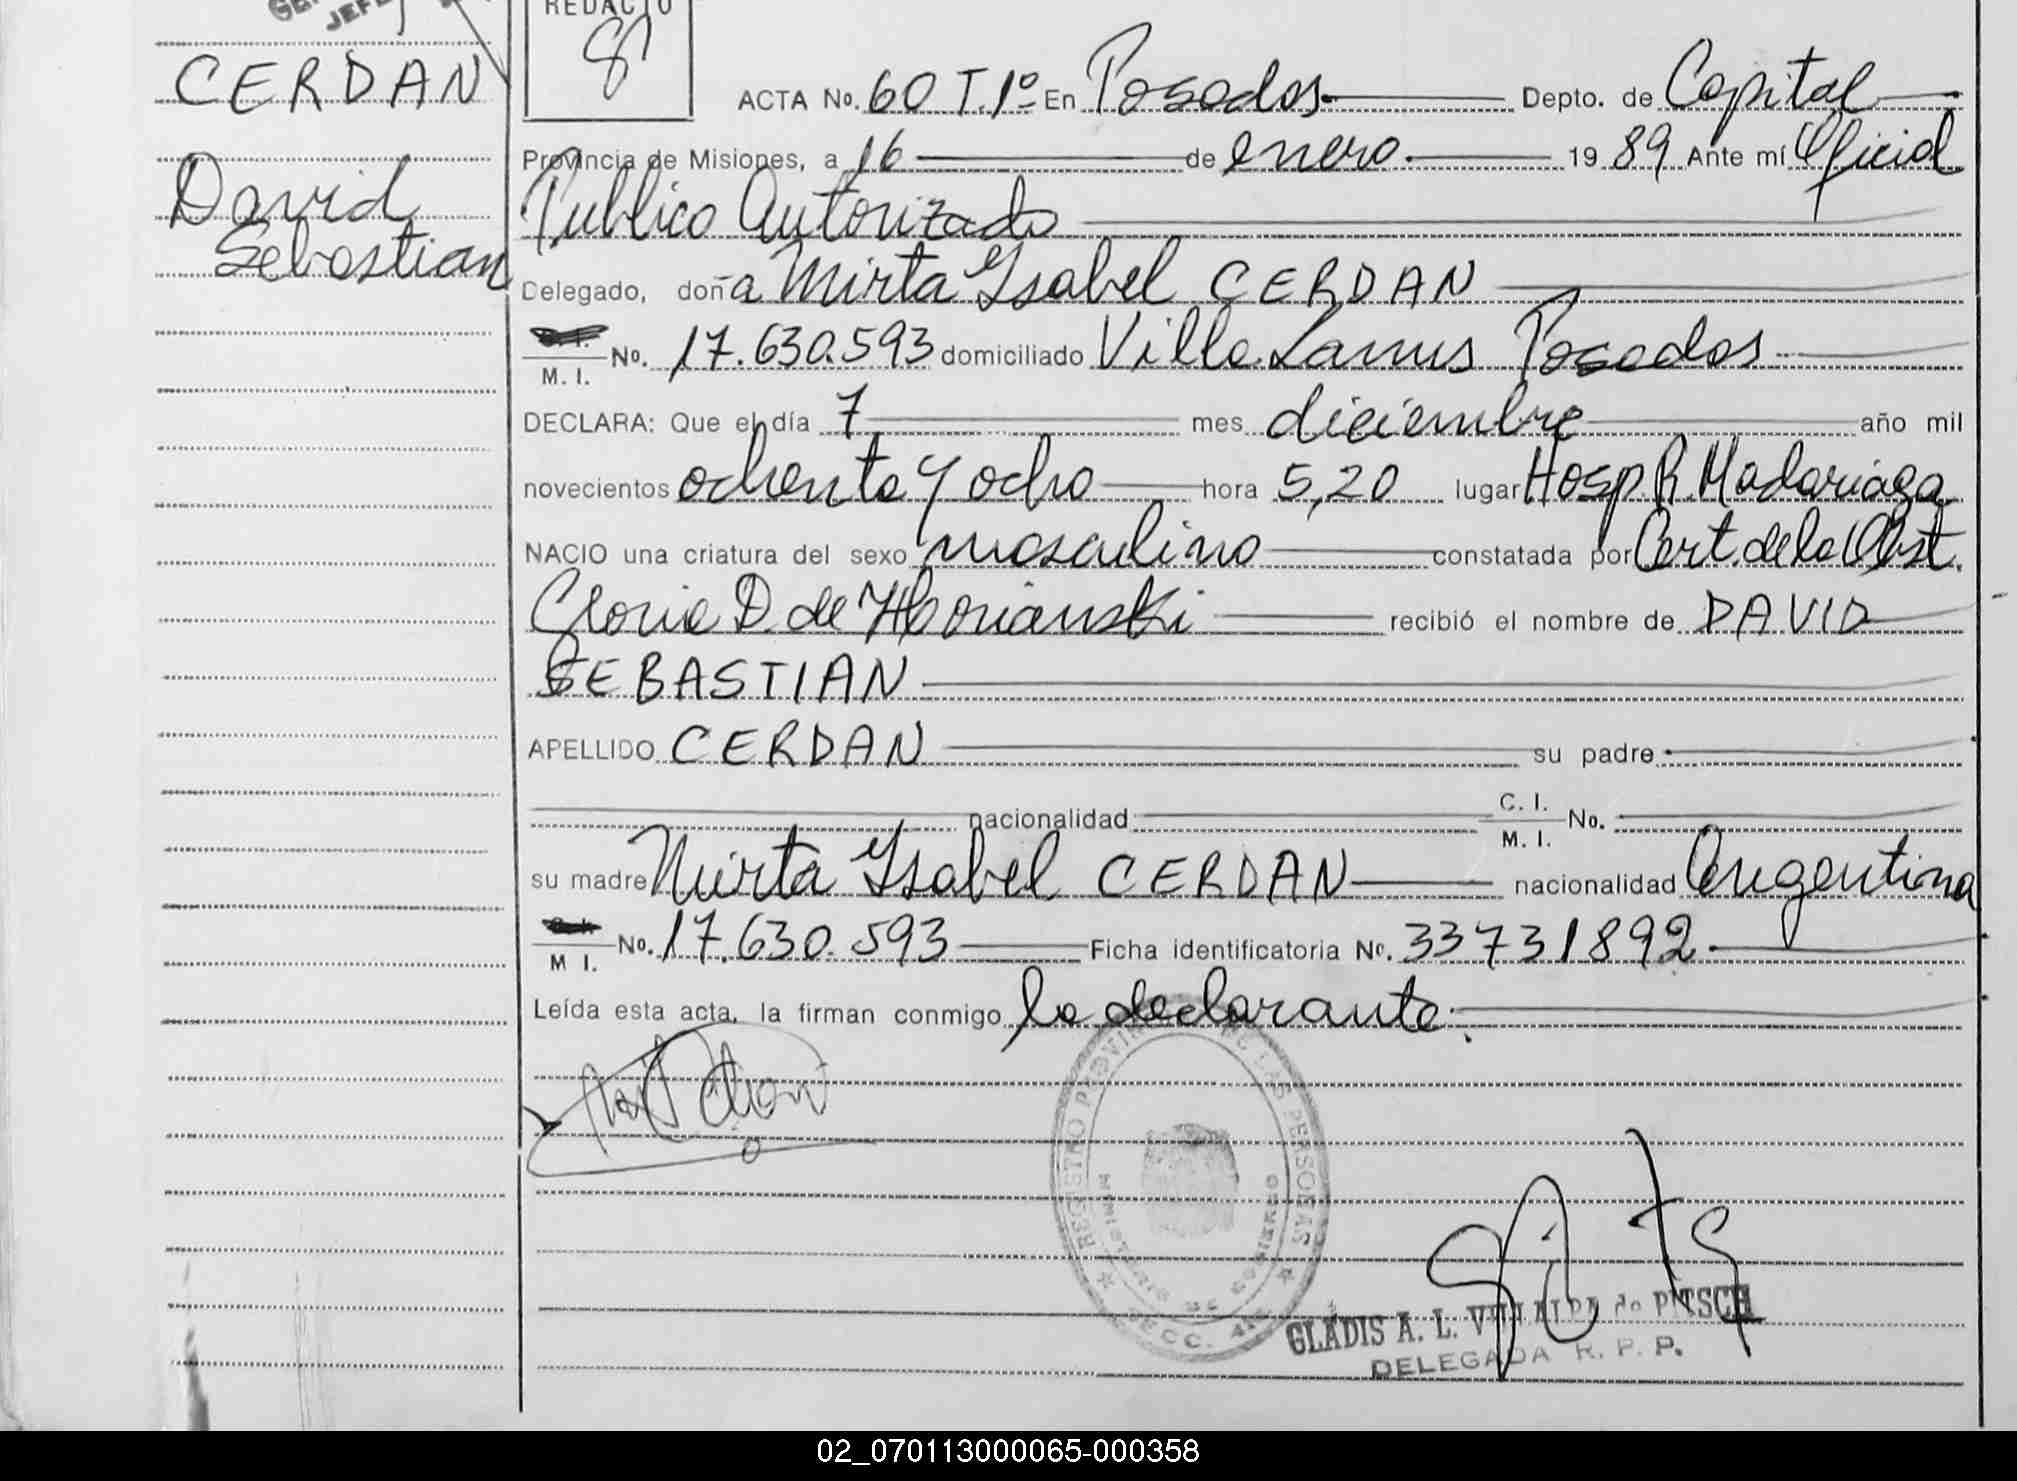 JEFE
REDACTO
CERDAN
David
Sebastian
ACTA No. 60 T.1º En Posadas Depto. de Capital
Provincia de Misiones, a 16 de enero 19 89 Ante mí Oficial
Publico Autorizado
Delegado, doña Mirta Ysabel CERDAN
M. I. No. 17.630.593 domiciliado Villa Lanus Posadas
DECLARA: Que el día 7 mes diciembre año mil
novecientos ochenta y ocho hora 5,20 lugar Hosp. R. Madariaga
NACIO una criatura del sexo masculino constatada por Cert. de la Obst.
Gloria D. de recibió el nombre de DAVID
SEBASTIAN
APELLIDO CERDAN su padre
nacionalidad C. I. M. I. No.
su madre Mirta Ysabel CERDAN nacionalidad Argentina
M I. No. 17.630.593 Ficha identificatoria No. 33731892
Leída esta acta, la firman conmigo la declarante.
REGISTRO PROVINCIAL DE LAS PERSONAS
MINISTERIO DE GOBIERNO
SECC.
GLADIS A. L. de PITSCH
DELEGADA R. P. P.
02_070113000065-000358